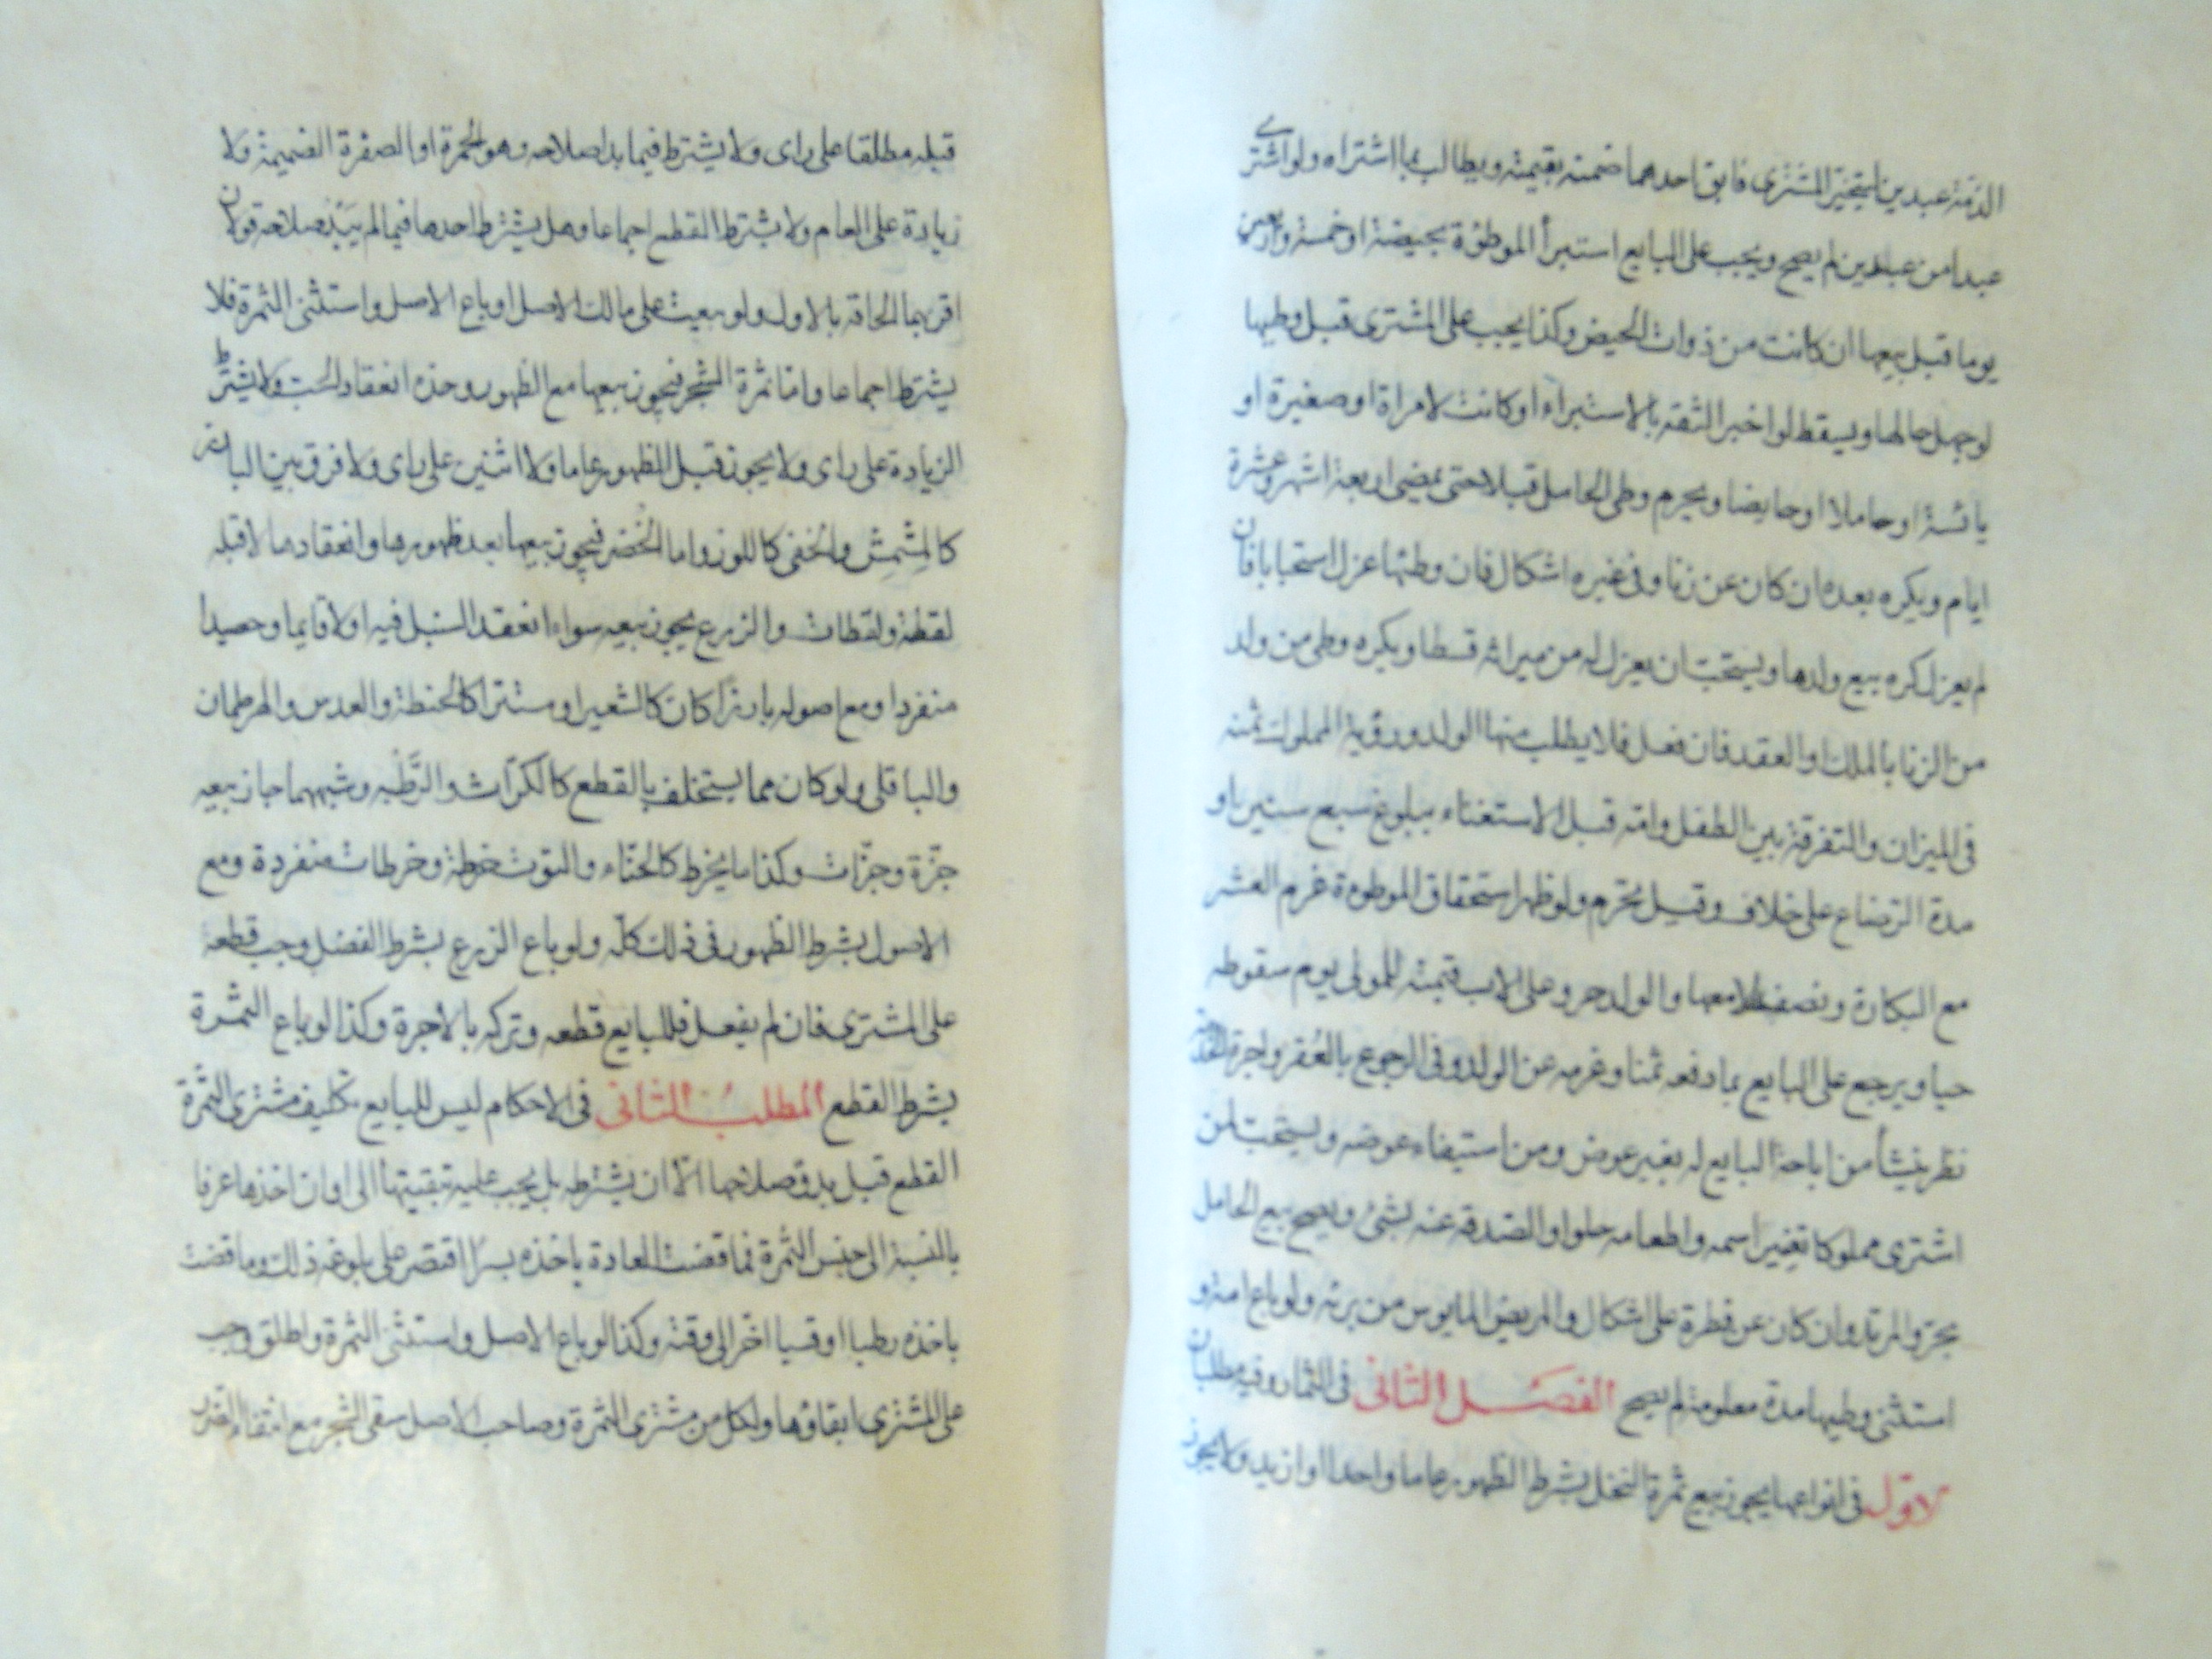 الذمة عبدين ليتخير المشترى فابق احدهما ضمنه بقيمته ويطالب بما اشتراه ولو اشترى
عبدا من عبدين لم يصح ويجب على البايع استبرأ الموطوءة بحيضة او خمسة واربعين
يوما قبل بيعها ان كانت من ذوات الحيض وكذا يجب على المشترى قبل وطيها
لو جهل حالها ويسقط لو اخبر الثقة بالاستبراء او كانت لامراة او صغيرة او
يائسة او حاملا او حايضا ويحرم وطى الحامل قبلا حتى يمضى اربعة اشهر وعشرة
ايام ويكره بعده ان كان عن زنا وفى غيره اشكال فان وطئها عزل استحبابا فان
لم يعزل كره بيع ولدها ويستحب ان يعزل له من ميراثه قسطا ويكره وطى من ولد
من الزنا بالملك او العقد فان فعل فلا يطلب منها الولد ورؤية المملوك ثمنه
فى الميزان والتفرقة بين الطفل وامه قبل الاستغناء ببلوغ سبع سنين او
مدة الرضاع على خلاف وقيل يحرم ولو ظهر استحقاق الموطوءة غرم العشر
مع البكارة ونصفه لا معها والولد حر وعلى الاب قيمته للمولى يوم سقوطه
حيا ويرجع على البايع بما دفعه ثمنا وغرمه عن الولد وفى الرجوع بالعقر واجرة الخدمة
نظر ينشأ من اباحة البايع له بغير عوض ومن استيفاء عوضه ويستحب لمن
اشترى مملوكا تغيير اسمه واطعامه حلوا والصدقة عنه بشئ ويصح بيع الحامل
بحر والمرتد وان كان عن فطرة على اشكال والمريض المايوس من برئه ولو باع امة و
استثنى وطيها مدة معلومة لم يصح الفصل الثانى فى الثمار وفيه مطلبان
الاول فى انواعها يجوز بيع ثمرة النخل بشرط الظهور عاما واحدا او ازيد ولا يجوز
قبله مطلقا على راى ولا يشترط فيما بدا صلاحه وهو الحمرة او الصفرة الضميمة ولا
زيادة على العام ولا يشترط القطع اجماعا وهل يشترط احدها فيما لم يبد صلاحه قولان
اقربهما الحاقه بالاول ولو بيعت على مالك الاصل او باع الاصل واستثنى الثمرة فلا
يشترط اجماعا واما ثمرة الشجر فيجوز بيعها مع الظهور وحده انعقاد الحب ولا يشترط
الزيادة على راى ولا يجوز قبل الظهور عاما ولا اثنين على راى ولا فرق بين البارز
كالمشمش والخفى كاللوز واما الخضر فيجوز بيعها بعد ظهورها وانعقادها لا قبله
لقطة ولقطات والزرع يجوز بيعه سواء انعقد السنبل فيه او لا قايما وحصيدا
منفردا ومع اصوله بارزا كان كالشعير او مستترا كالحنطة والعدس والهرطمان
والباقلى ولو كان مما يستخلف بالقطع كالكراث والرطبة وشبههما جاز بيعه
جزة وجزات وكذا ما يخرط كالحناء والتوت خرطة وخرطات منفردة ومع
الاصول بشرط الظهور فى ذلك كله ولو باع الزرع بشرط الفصل وجب قطعه
على المشترى فان لم يفعل فللبايع قطعه وتركه بالاجرة وكذا لو باع الثمرة
بشرط القطع المطلب الثانى فى الاحكام ليس للبايع تكليف مشترى الثمرة
القطع قبل بدو صلاحها الا ان يشترطه بل يجب عليه تبقيتها الى اوان اخذها عرفا
بالنسبة الى جنس الثمرة فما قضت العادة باخذه بسرا اقتصر على بلوغه ذلك وما قضت
باخذه رطبا او قسبا اخر الى وقته وكذا لو باع الاصل واستثنى الثمرة واطلق وجب
على المشترى ابقاؤها ولكل من مشترى الثمرة وصاحب الاصل سقى الشجر مع انتفاء الضرر